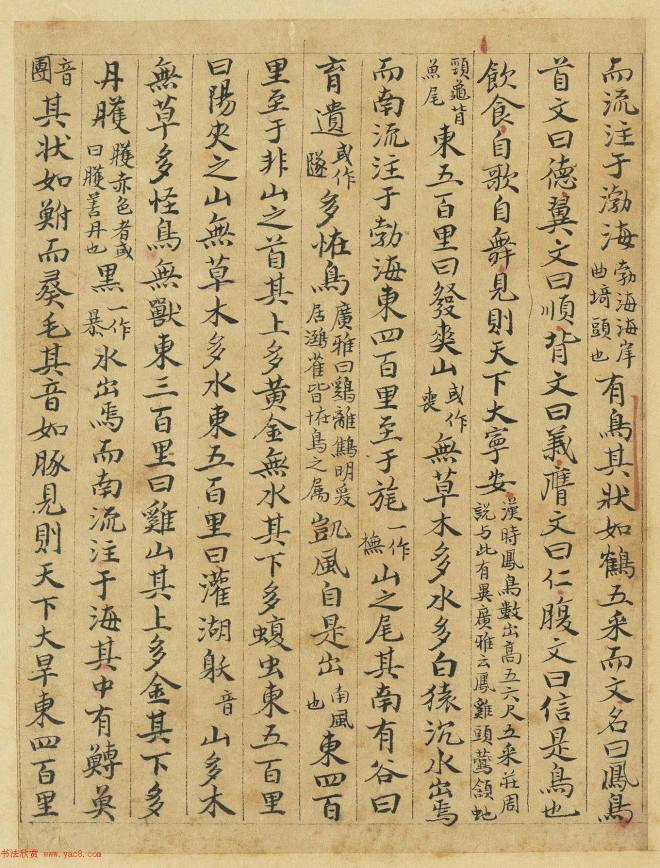 而流注于渤海渤海海岸曲埼頭也有鳥其狀如鶴五采而文名曰鳳鳥
首文曰德翼文曰順背文曰義膺文曰仁腹文曰信是鳥也
飲食自歌自舞見則天下大寧安漢時鳳鳥數出高五六尺五采莊周說与此有異廣雅云鳳雞頭鷰頷虵
頸龜背魚尾東五百里曰發爽山或作喪無草木多水多白猿汎水出焉
而南流注于勃海東四百里至于旄一作橅山之尾其南有谷曰
育遺或作隧多恠鳥廣雅曰鷄離鷦明爰居鵷雀皆恠鳥之属凱風自是出南風也東四百
里至于非山之首其上多黃金無水其下多蝮虫東五百里
曰陽夾之山無草木多水東五百里曰灌湖躲音山多木
無草多怪鳥無獸東三百里曰雞山其上多金其下多
丹雘雘赤色者或曰雘善丹也黑一作暴水出焉而南流注于海其中有鱄奠
音團其狀如鮒而彘毛其音如豚見則天下大旱東四百里
书法欣赏 www.yac8.com